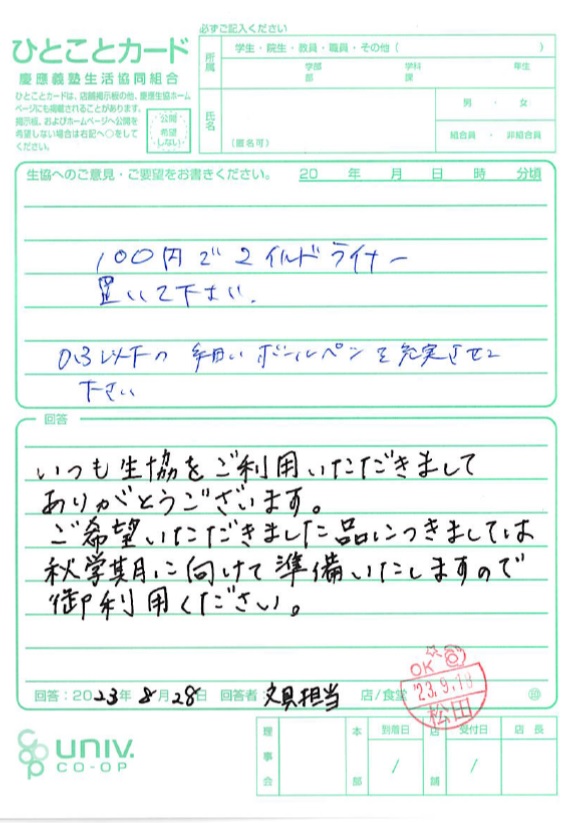 必ずご記入ください
ひとことカード
慶應義塾生活協同組合
ひとことカードは、店舗掲示板の他、慶應生協ホーム
ページにも掲載されることがあります。
掲示板、およびホームページへ公開を
希望しない場合は右記へ○をして
ください。
公開
希望
しない
所属
学生・院生・教員・職員・その他（　　　）
学部　学科　年生
部　課
氏名
（匿名可）
男　・　女
組合員　・　非組合員
生協へのご意見・ご要望をお書きください。　20　年　月　日　時　分頃
100円で マイルドライナー
置いて下さい.
0.3以下の 細い ボールペンを充実させて
下さい
回答
いつも生協をご利用いただきまして
ありがとうございます。
ご希望いただきました品につきましては
秋学期に向けて準備いたしますので
御利用ください。
回答：2023年8月28日　回答者：文具担当　店/食堂
OK
'23.9.18
松田
UNIV.
CO-OP
理事会
本部
到着日
/
店舗
受付日
/
店長